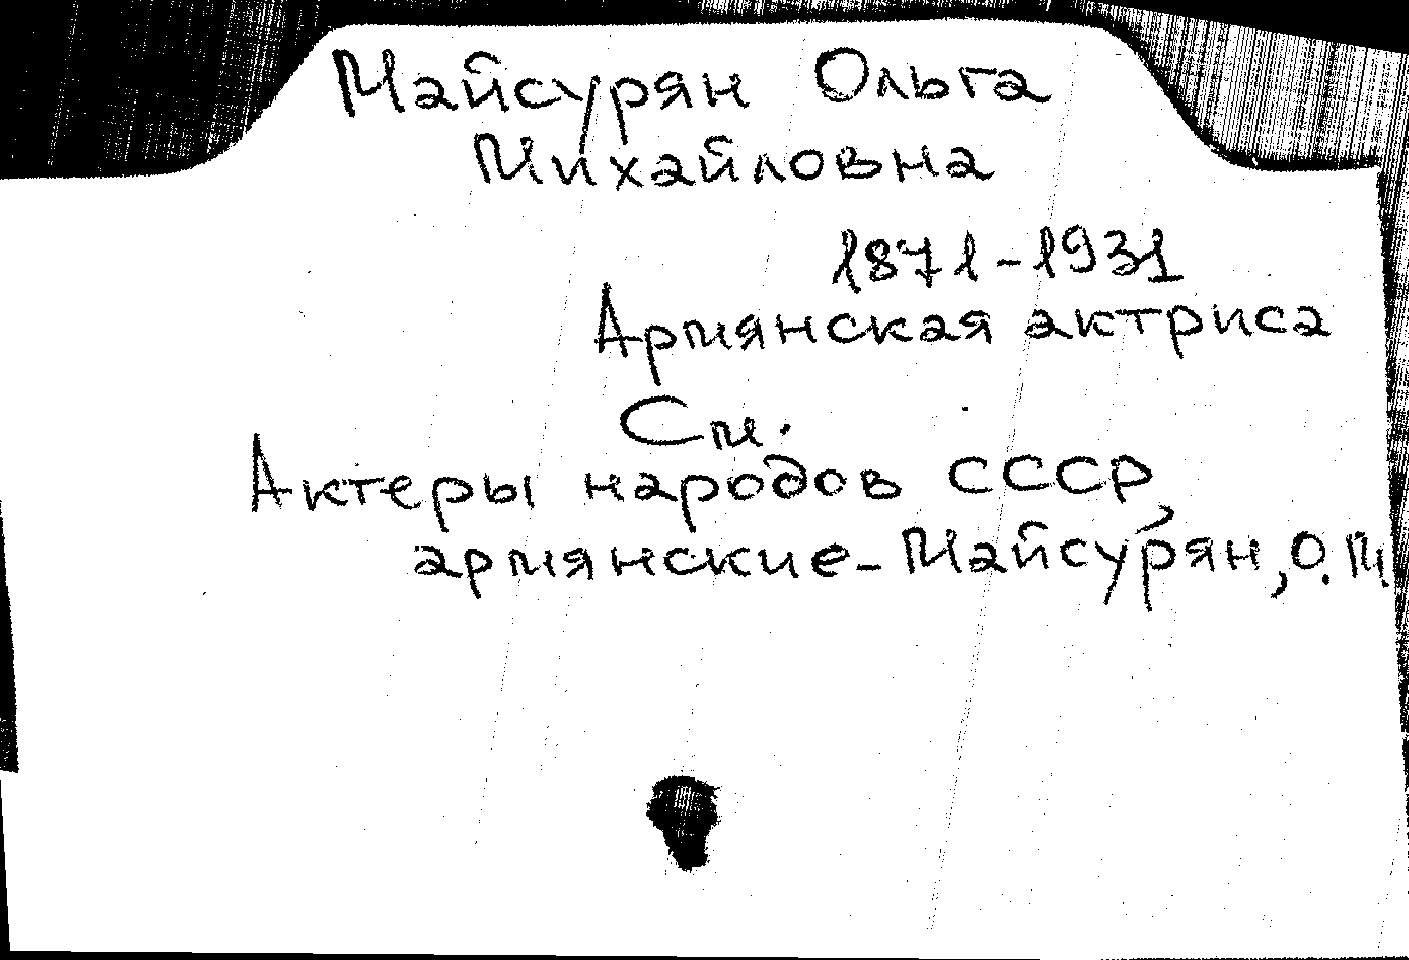 Майсурян Ольга
Михайловна
1871-1931
Армянская актриса
См.
Актеры народов СССР,
армянские-Майсурян, О.М